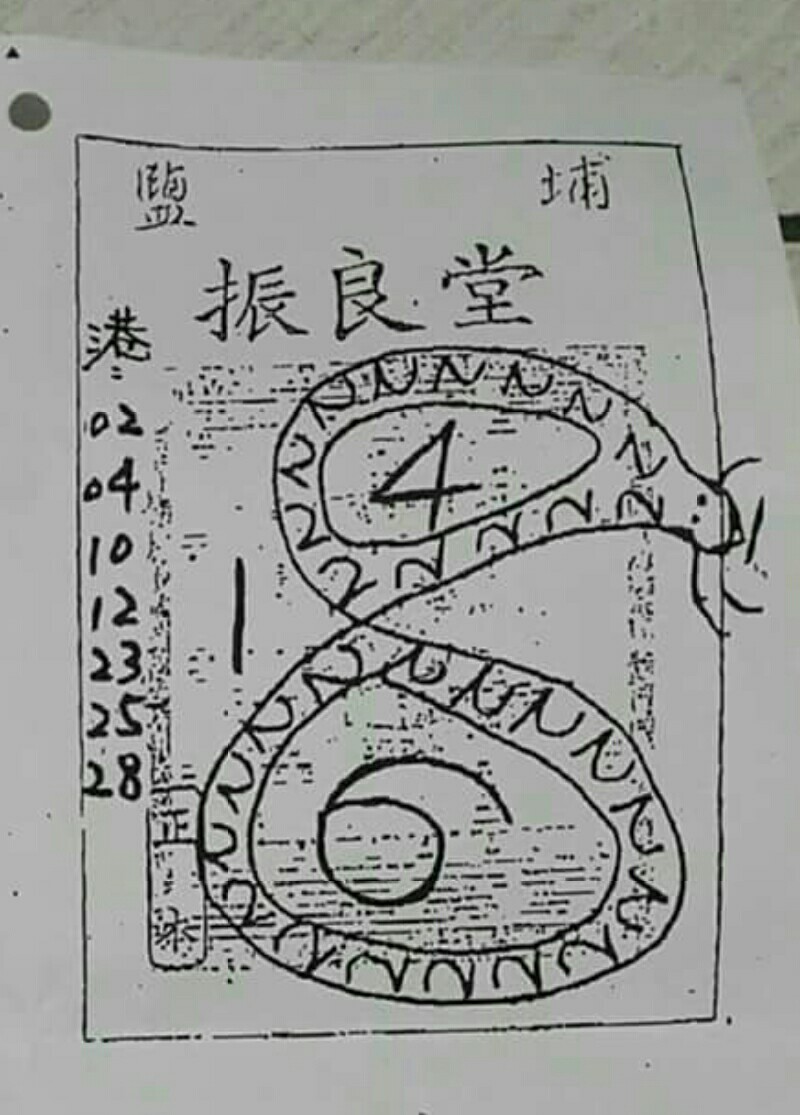 鹽 埔
振良堂
港:
02
04
10
12
23
25
28
4
1
6
正